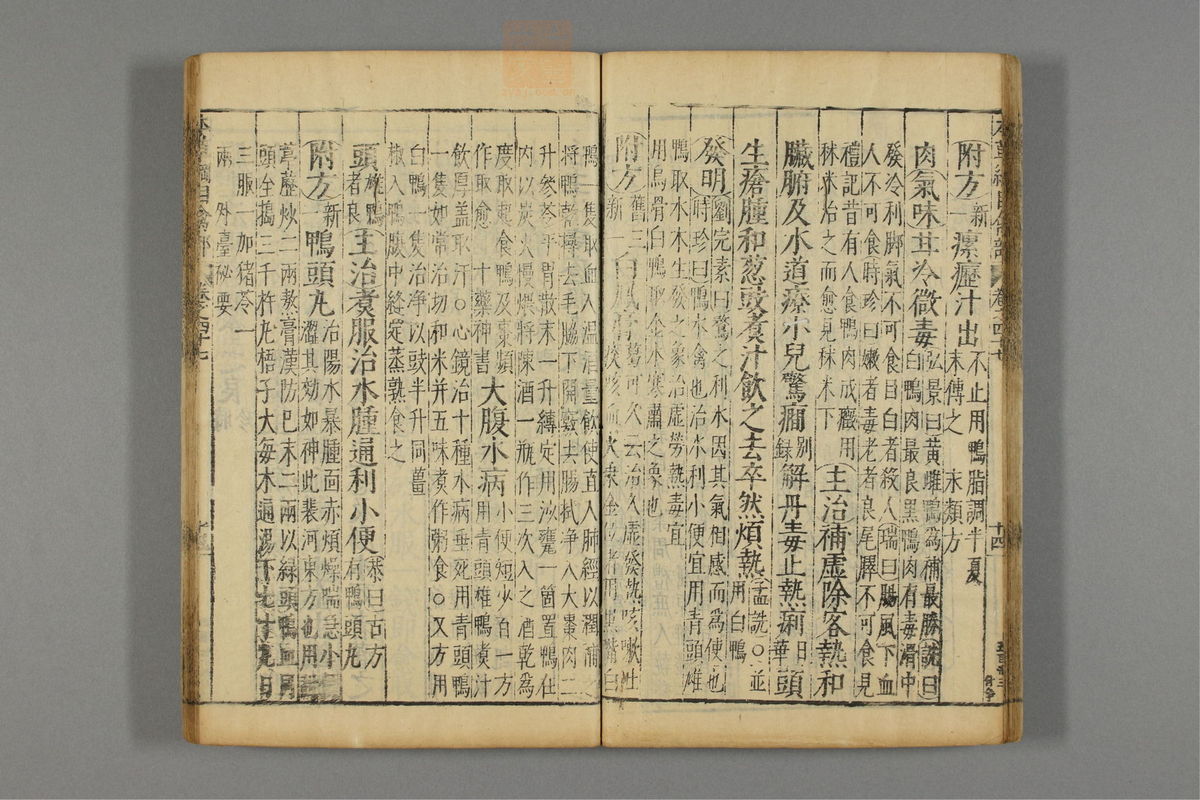 本草綱目禽部 卷之四十七 十四
附方新一瘰癧汁出不止用鴨脂調半夏
末傅之 永類方
肉氣味甘冷微毒弘景曰黃雌鴨為補最勝詵曰
白鴨肉最良黑鴨肉有毒滑中
發冷利脚氣不可食目白者殺人瑞曰腸風下血
人不可食時珍曰嫩者毒老者良尾臎不可食見
禮記昔有人食鴨肉成癥用
秫米治之而愈見秫米下主治補虛除客熱和
臟腑及水道療小兒驚癇別錄解丹毒止熱痢日華頭
生瘡腫和葱豉煮汁飲之去卒然煩熱孟詵○並用白鴨
發明劉完素曰鶩之利水因其氣相感而為使也
時珍曰鴨水禽也治水利小便宜用青頭雄
鴨取水木生發之象治虛勞熱毒宜
用烏骨白鴨取金水寒肅之象也
附方舊三新一白鳳膏葛可久云治久虛發熱咳嗽吐
痰咳血火乘金位者用黑嘴白
鴨一隻取血入溫酒量飲使直入肺經以潤補之
將鴨乾撏去毛脇下開竅去腸拭淨入大棗肉二
升參苓平胃散末一升縛定用沙甕一箇置鴨在
內以炭火慢煨將陳酒一瓶作三次入之酒乾為
度取起食鴨及棗頻
作取愈 十藥神書大腹水病小便短少百一方
用青頭雄鴨煮汁
飲厚蓋取汗○心鏡治十種水病垂死用青頭鴨
一隻如常治切和米并五味煮作粥食○又方用
白鴨一隻治淨以豉半升同薑
椒入鴨腹中縫定蒸熟食之
頭雄鴨者良主治煮服治水腫通利小便恭曰古方有鴨頭丸
附方新一鴨頭丸治陽水暴腫面赤煩燥喘急小便
澀其効如神此裴河東方也用甜
葶藶炒二兩熬膏漢防已末二兩以綠頭鴨血同
頭全搗三千杵丸梧子大每木通湯下七十丸日
三服一加猪苓一
兩 外臺秘要
本草綱目禽部 卷之四十七 十四